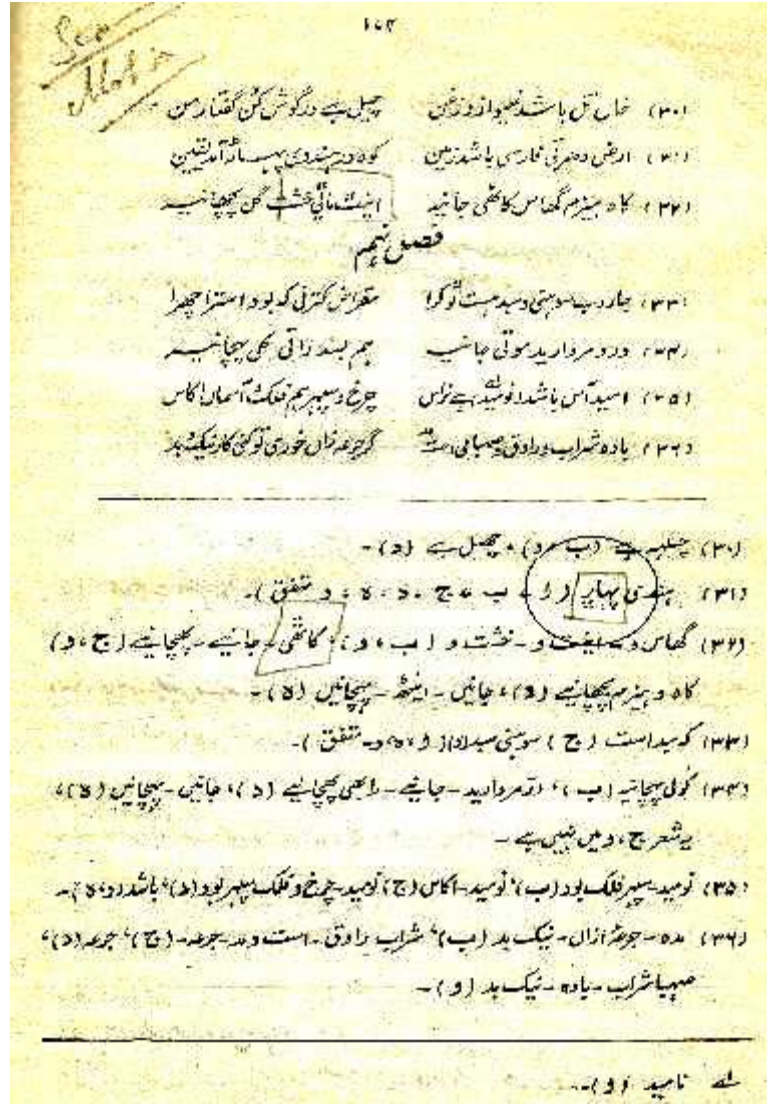 ۱۰۴
(۳۰) خال تل باشد غلیواز و زغن چیل ہے درگوش کن گفتار من
(۳۱) ارض دھرتی فارسی باشد زمین کوہ در ہندوی پہاڑ آمد یقین
(۳۲) کاہ ہیزم گھاس کاٹھی جانیہ اینٹ ماٹی خشت گل پچھانیہ
فصل نہم
(۳۳) جاروب سوہنی و سبد ہست ٹوکرا مقراض کترنی کہ بود استرا چھرا
(۳۴) در و مروارید موتی جانیہ ہم پچھانیہ
(۳۵) امید آس باشد نومید ہے نراس چرخ و سپہر ہم فلک آسمان اکاس
(۳۶) بادہ شراب و راوق و صہبا گر جرعہ زاں خوری تو کنی کار نیک بد
(۳۰) ہے (ب، و)، چھیل ہے (د)۔
(۳۱) ہندی پہاڑ (ا، ب، ج، د، ہ، و متفق)۔
(۳۲) گھاس و خشت و (ب، و)، کاٹھی۔ جانیے۔ پچھانیے (ج، و)
کاہ و ہیزم پچھانیے (د)، جانیں۔ اینٹھ۔ پہچانیں (ہ)۔
(۳۳) کہ سبد است (ج) سوہنی سبد متفق)۔
(۳۴) پہچانیہ (ب)، مروارید۔ جانیے۔ پچھانیے (د)، جانیں۔ پہچانیں (ہ)،
یہ شعر ج، و میں نہیں ہے۔
(۳۵) نومید۔ سپہر فلک بود (ب)، نومید۔ اکاس (ج) نومید۔ چرخ و فلک سپہر بود (د)، باشد (و، ہ)۔
(۳۶) جرعہ ازاں۔ نیک بد (ب)، شراب راوق۔ است جرعہ۔ (ج)، جرعہ (د)،
صہبا شراب۔ بادہ۔ نیک بد (و)۔
نامید (و)۔